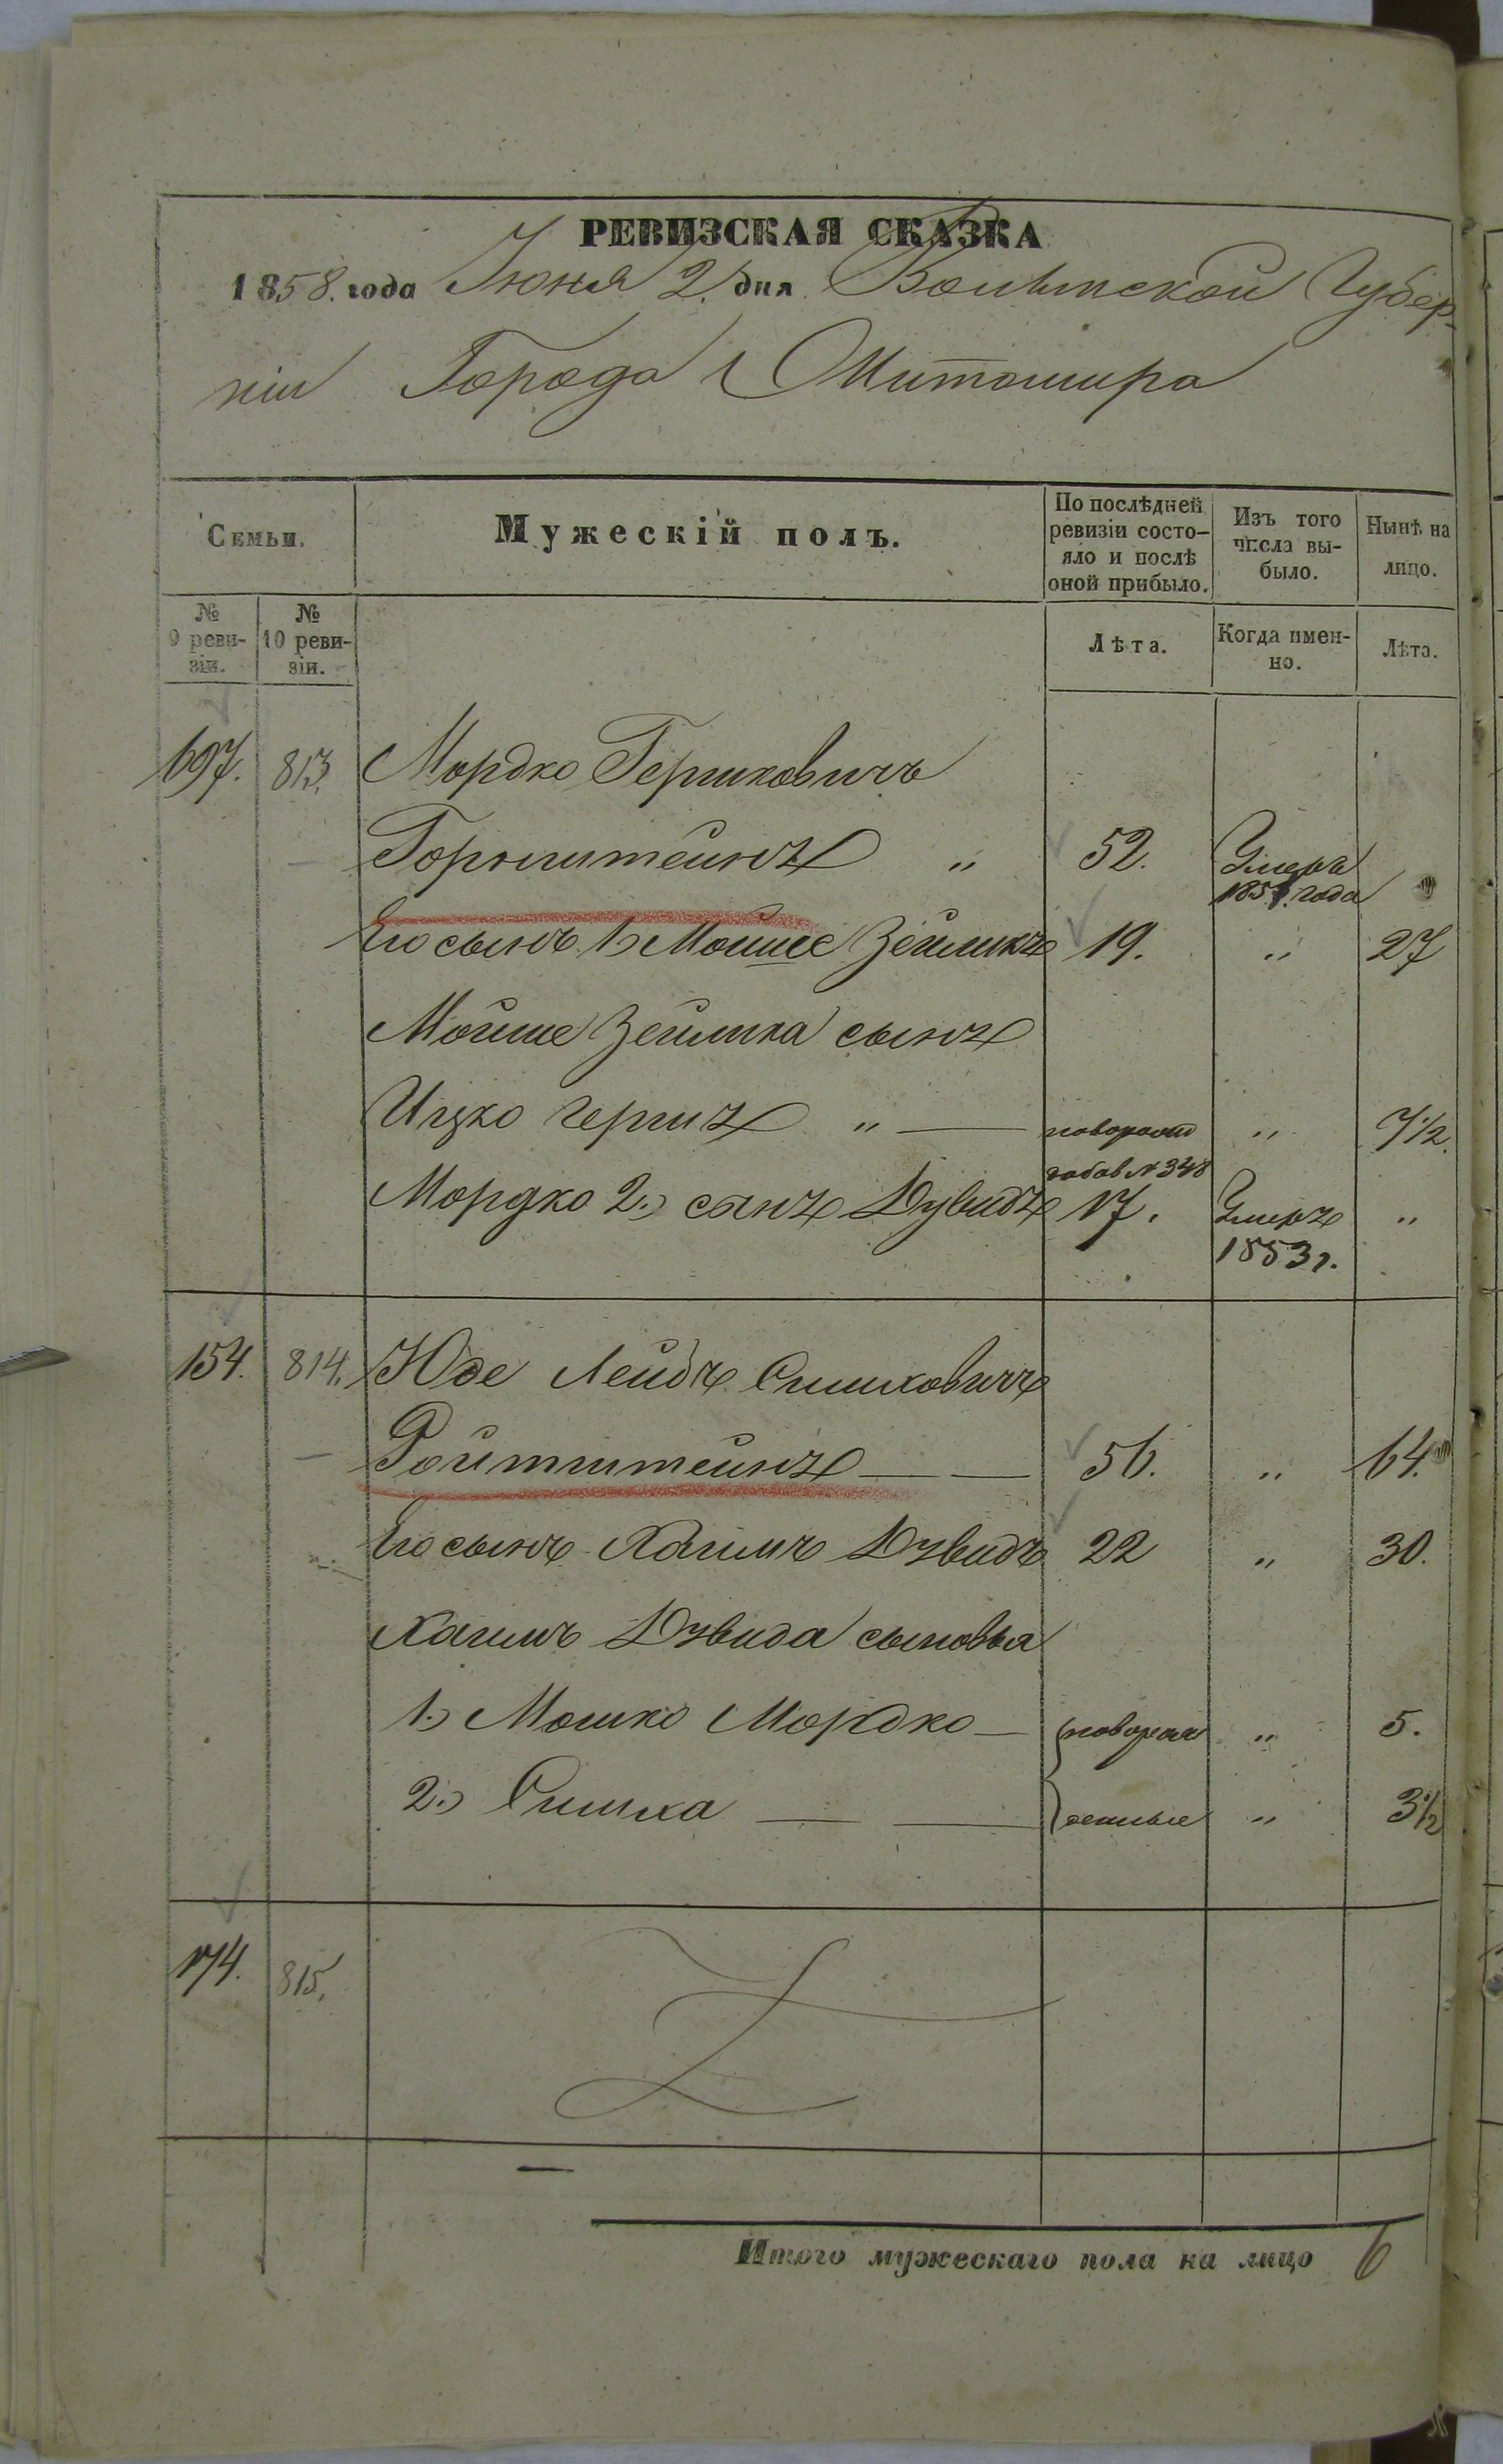 РЕВИЗСКАЯ СКАЗКА
1858. года Июня 2. дня Волынской Губер-
ніи Города Житомира
Семьи.
Мужескій полъ.
По послѣдней ревизіи состо-
яло и послѣ
оной прибыло.
Изъ того
числа вы-
было.
Нынѣ на
лицо.
№
9 реви-
зіи.
№
10 реви-
зіи.
Лѣта.
Когда имен-
но.
Лѣта.
697. 813. Мордко Гершковичъ
Горнштейнъ " 52. Умеръ
года
Его сынъ 1) Мойше Зейликъ 19. " 27
Мойше Зейлика сынъ
Ицко Гершъ " — новорожд " 7½.
добав № 348
Мордко 2.) сынъ Дувидъ 17. Умеръ "
1853 г.
154. 814. Юде Лейбъ Симховичъ
Ройтштейнъ — — 56. " 64.
Его сынъ Хаимъ Дувидъ 22 " 30.
Хаимъ Дувида сыновья
1.) Мошко Мордко — новорож " 5.
2.) Симха — — денные " 3½
174. 815.
Итого мужескаго пола на лицо 6